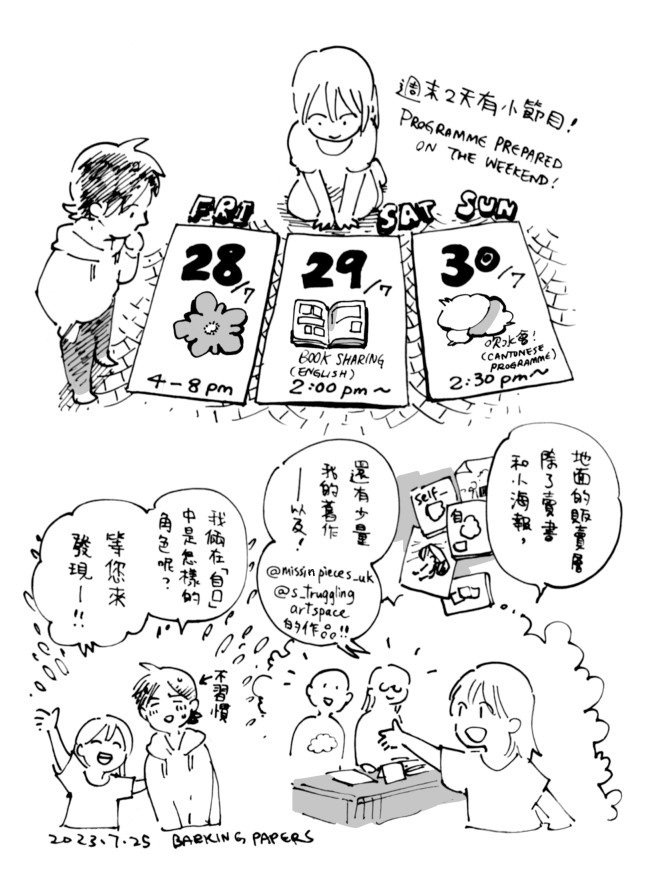 週末2天有小節目!
PROGRAMME PREPARED
ON THE WEEKEND!
FRI
SAT
SUN
28/7
4-8pm
29/7
BOOK SHARING
(ENGLISH)
2:00pm~
30/7
吹水會!
(CANTONESE
PROGRAMME)
2:30pm~
地面的販賣層
除了賣書
和小海報，
self-
自
還有少量
我的舊作
——以及!
@missinpieces_uk
@s_truggling
artspace
的作品!!
我倆在「自囗」
中是怎樣的
角色呢?
等您來
發現——!!
不習慣
2023.7.25 BARKING PAPERS